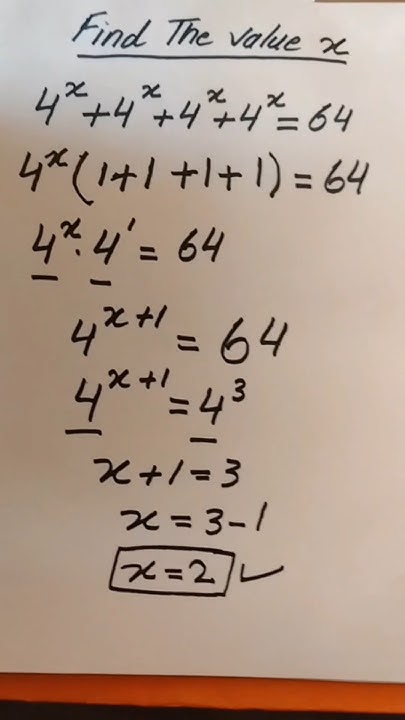 Find The value x
4^x + 4^x + 4^x + 4^x = 64
4^x (1+1+1+1) = 64
4^x · 4^1 = 64
4^(x+1) = 64
4^(x+1) = 4^3
x+1=3
x = 3-1
x = 2 ✓